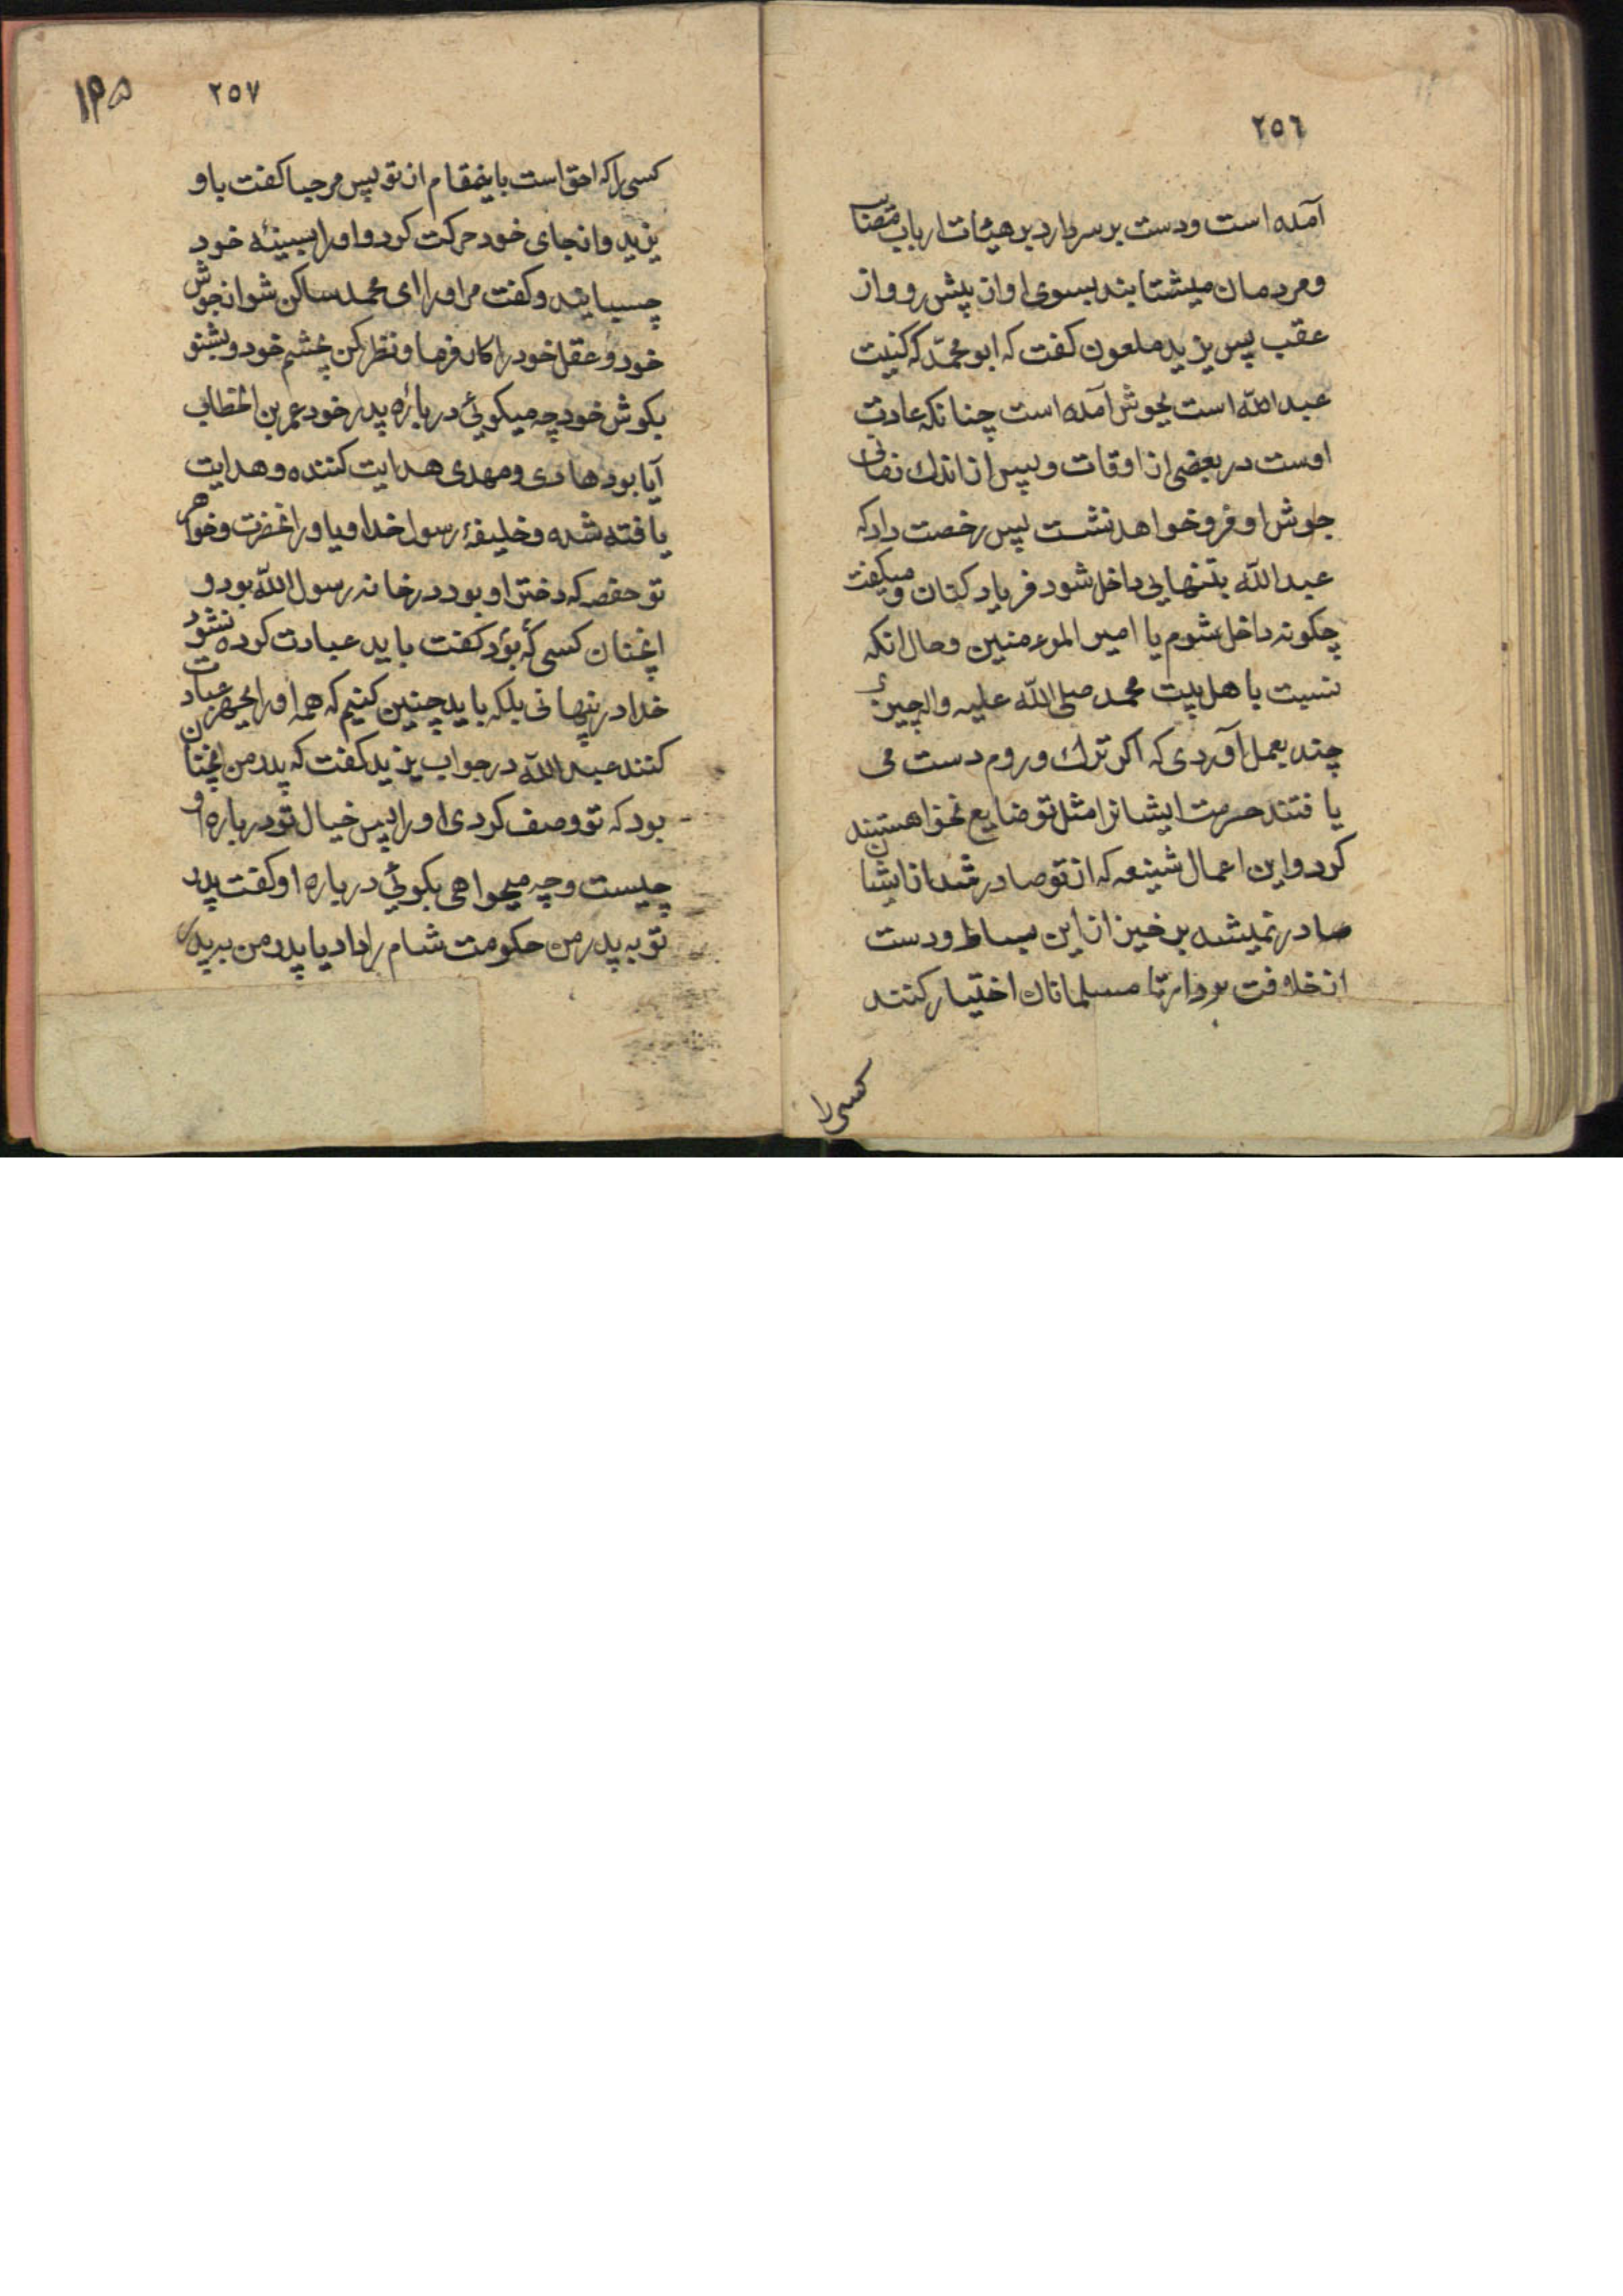 ٢٥٦
آمده است ودست بر سر دارد بر هیئات ارباب مصائب
ومردمان میشتابند بسوی او از پیش رو واز
عقب پس یزید ملعون کفت که ابو محمّد که کنیت
عبد اللّه است بجوش آمده است چنانکه عادت
اوست در بعضی از اوقات وپس از اندك زمانی
جوش او فرو خواهد نشست پس رخصت داد که
عبد اللّه بتنهایی داخل شود فریاد کنان ومیکفت
چکونه داخل شوم یا امیر الموءمنین وحال انکه
نسبت باهل بیت محمد صلی اللّه علیه واله چیزی
چند بعمل آوردی که اکر ترك وروم دست می
یافتند حرمت ایشانرا مثل تو ضایع نخواهستند
کرد واین اعمال شنیعه که از تو صادر شد از ایشان
صادر نمیشد بر خیز از این بساط ودست
از خلافت بردار تا مسلمانان اختیار کنند
کسی را
٢٥٧
١٢٥
کسی را که احق است باینمقام از تو پس مرحبا کفت باو
یزید واز جای خود حرکت کرد واو را بسینهٔ خود
چسبانید وکفت مر او را ای محمد ساکن شو از جوش
خود وعقل خود را کار فرما ونظر کن بچشم خود وبشنو
بکوش خود چه میکوئی در بارهٔ پدر خود عمر بن الخطاب
آیا بود هادی ومهدی هدایت کننده وهدایت
یافته شده وخلیفهٔ رسول خدا ویاور انحضرت وخواهر
تو حفصه که دختر او بود در خانه رسول اللّه بود و
انچنان کسی که بود کفت باید عبادت کرده نشود
خدا در پنهانی بلکه باید چنین کنیم که همه او را بجهر عبادت
کنند عبد اللّه در جواب یزید کفت که پدر من انچنان
بود که تو وصف کردی او را پس خیال تو در باره او
چیست وچه میخواهی بکوئی در باره او کفت پدر
تو به پدر من حکومت شام را داد یا پدر من به پدر